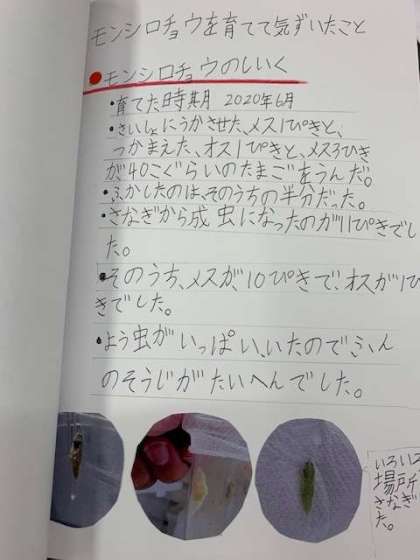 モンシロチョウを育てて気ずいたこと
モンシロチョウのしいく
・育てた時期 2020年6月
・さいしょにうかさせた、メス1ぴきと、
つかまえた、オス1ぴきと、メス3びき
が40こぐらいのたまごをうんだ。
・ふかしたのは、そのうちの半分だった。
・さなぎから成虫になったのが11ぴきでし
た。
・そのうち、メスが、10ぴきで、オスが1ぴ
きでした。
・よう虫がいっぱい、いたので、ふん
のそうじがたいへんでした。
いろいろ
場所
さなぎ
た。